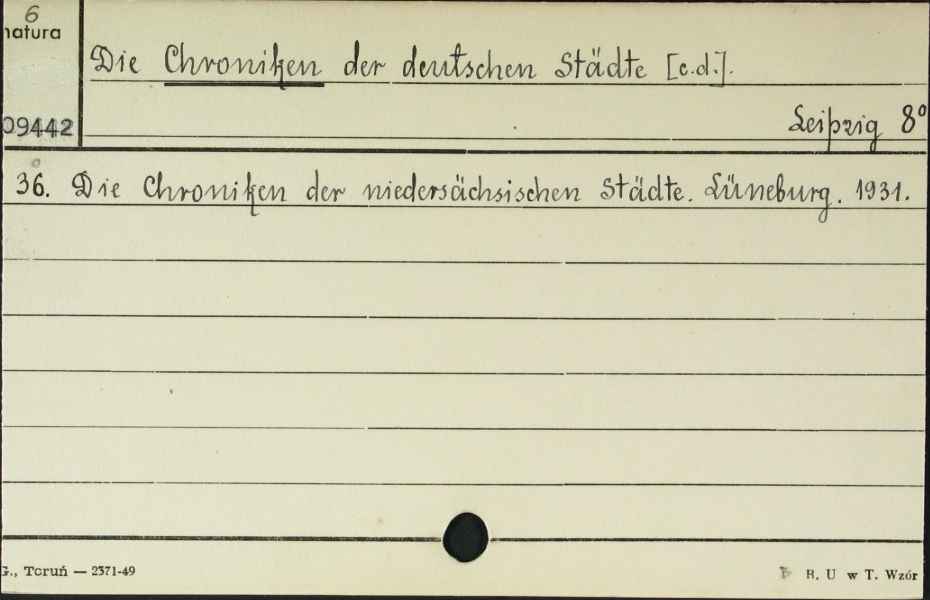 6
natura
Die Chroniken der deutschen Städte [c.d.].
09442
Leipzig 8°
36. Die Chroniken der niedersächsischen Städte. Lüneburg. 1931.
G., Toruń — 2371-49
B. U w T. Wzór